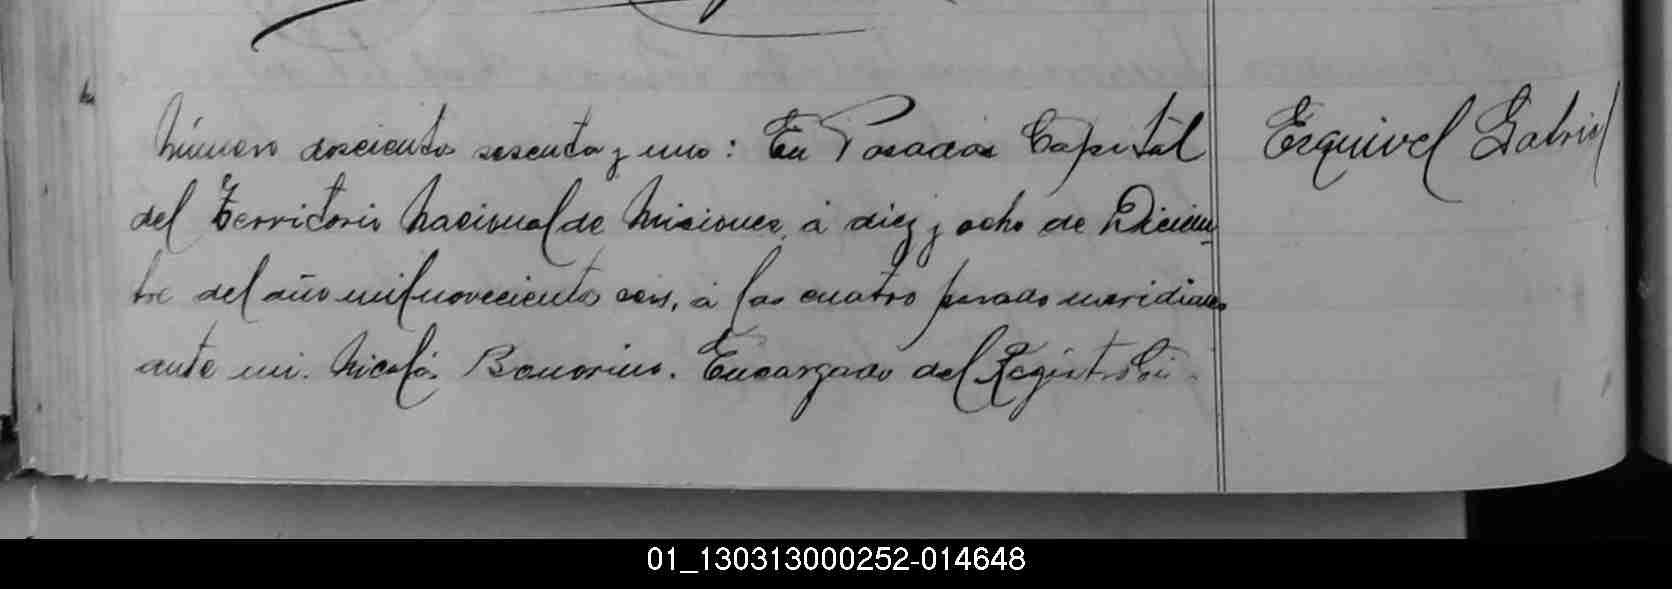 Número doscientos sesenta y uno: En Posadas Capital
del Territorio Nacional de Misiones, á diez y ocho de Diciem-
bre del año mil novecientos seis, á las cuatro pasado meridiano
ante mi. Nicolás Bonorino. Encargado del Registro Ci-
Esquivel Gabriel
01_130313000252-014648